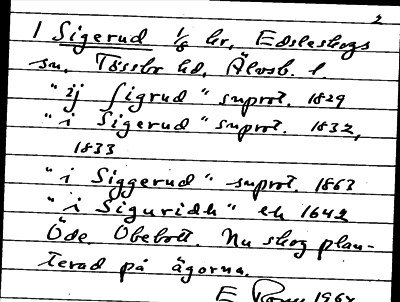 2
1 Sigerud 1/8 kr, Edsleskogs
sn. Tössbo hd, Älvsb. l.
"ij Sigrud" snprot. 1829
"i Sigerud" snprot. 1832,
1833
"i Siggerud" snprot. 1863
"i Siguridh" ek 1642
Öde. Obebott. Nu skog plan-
terad på ägorna.
E 1964